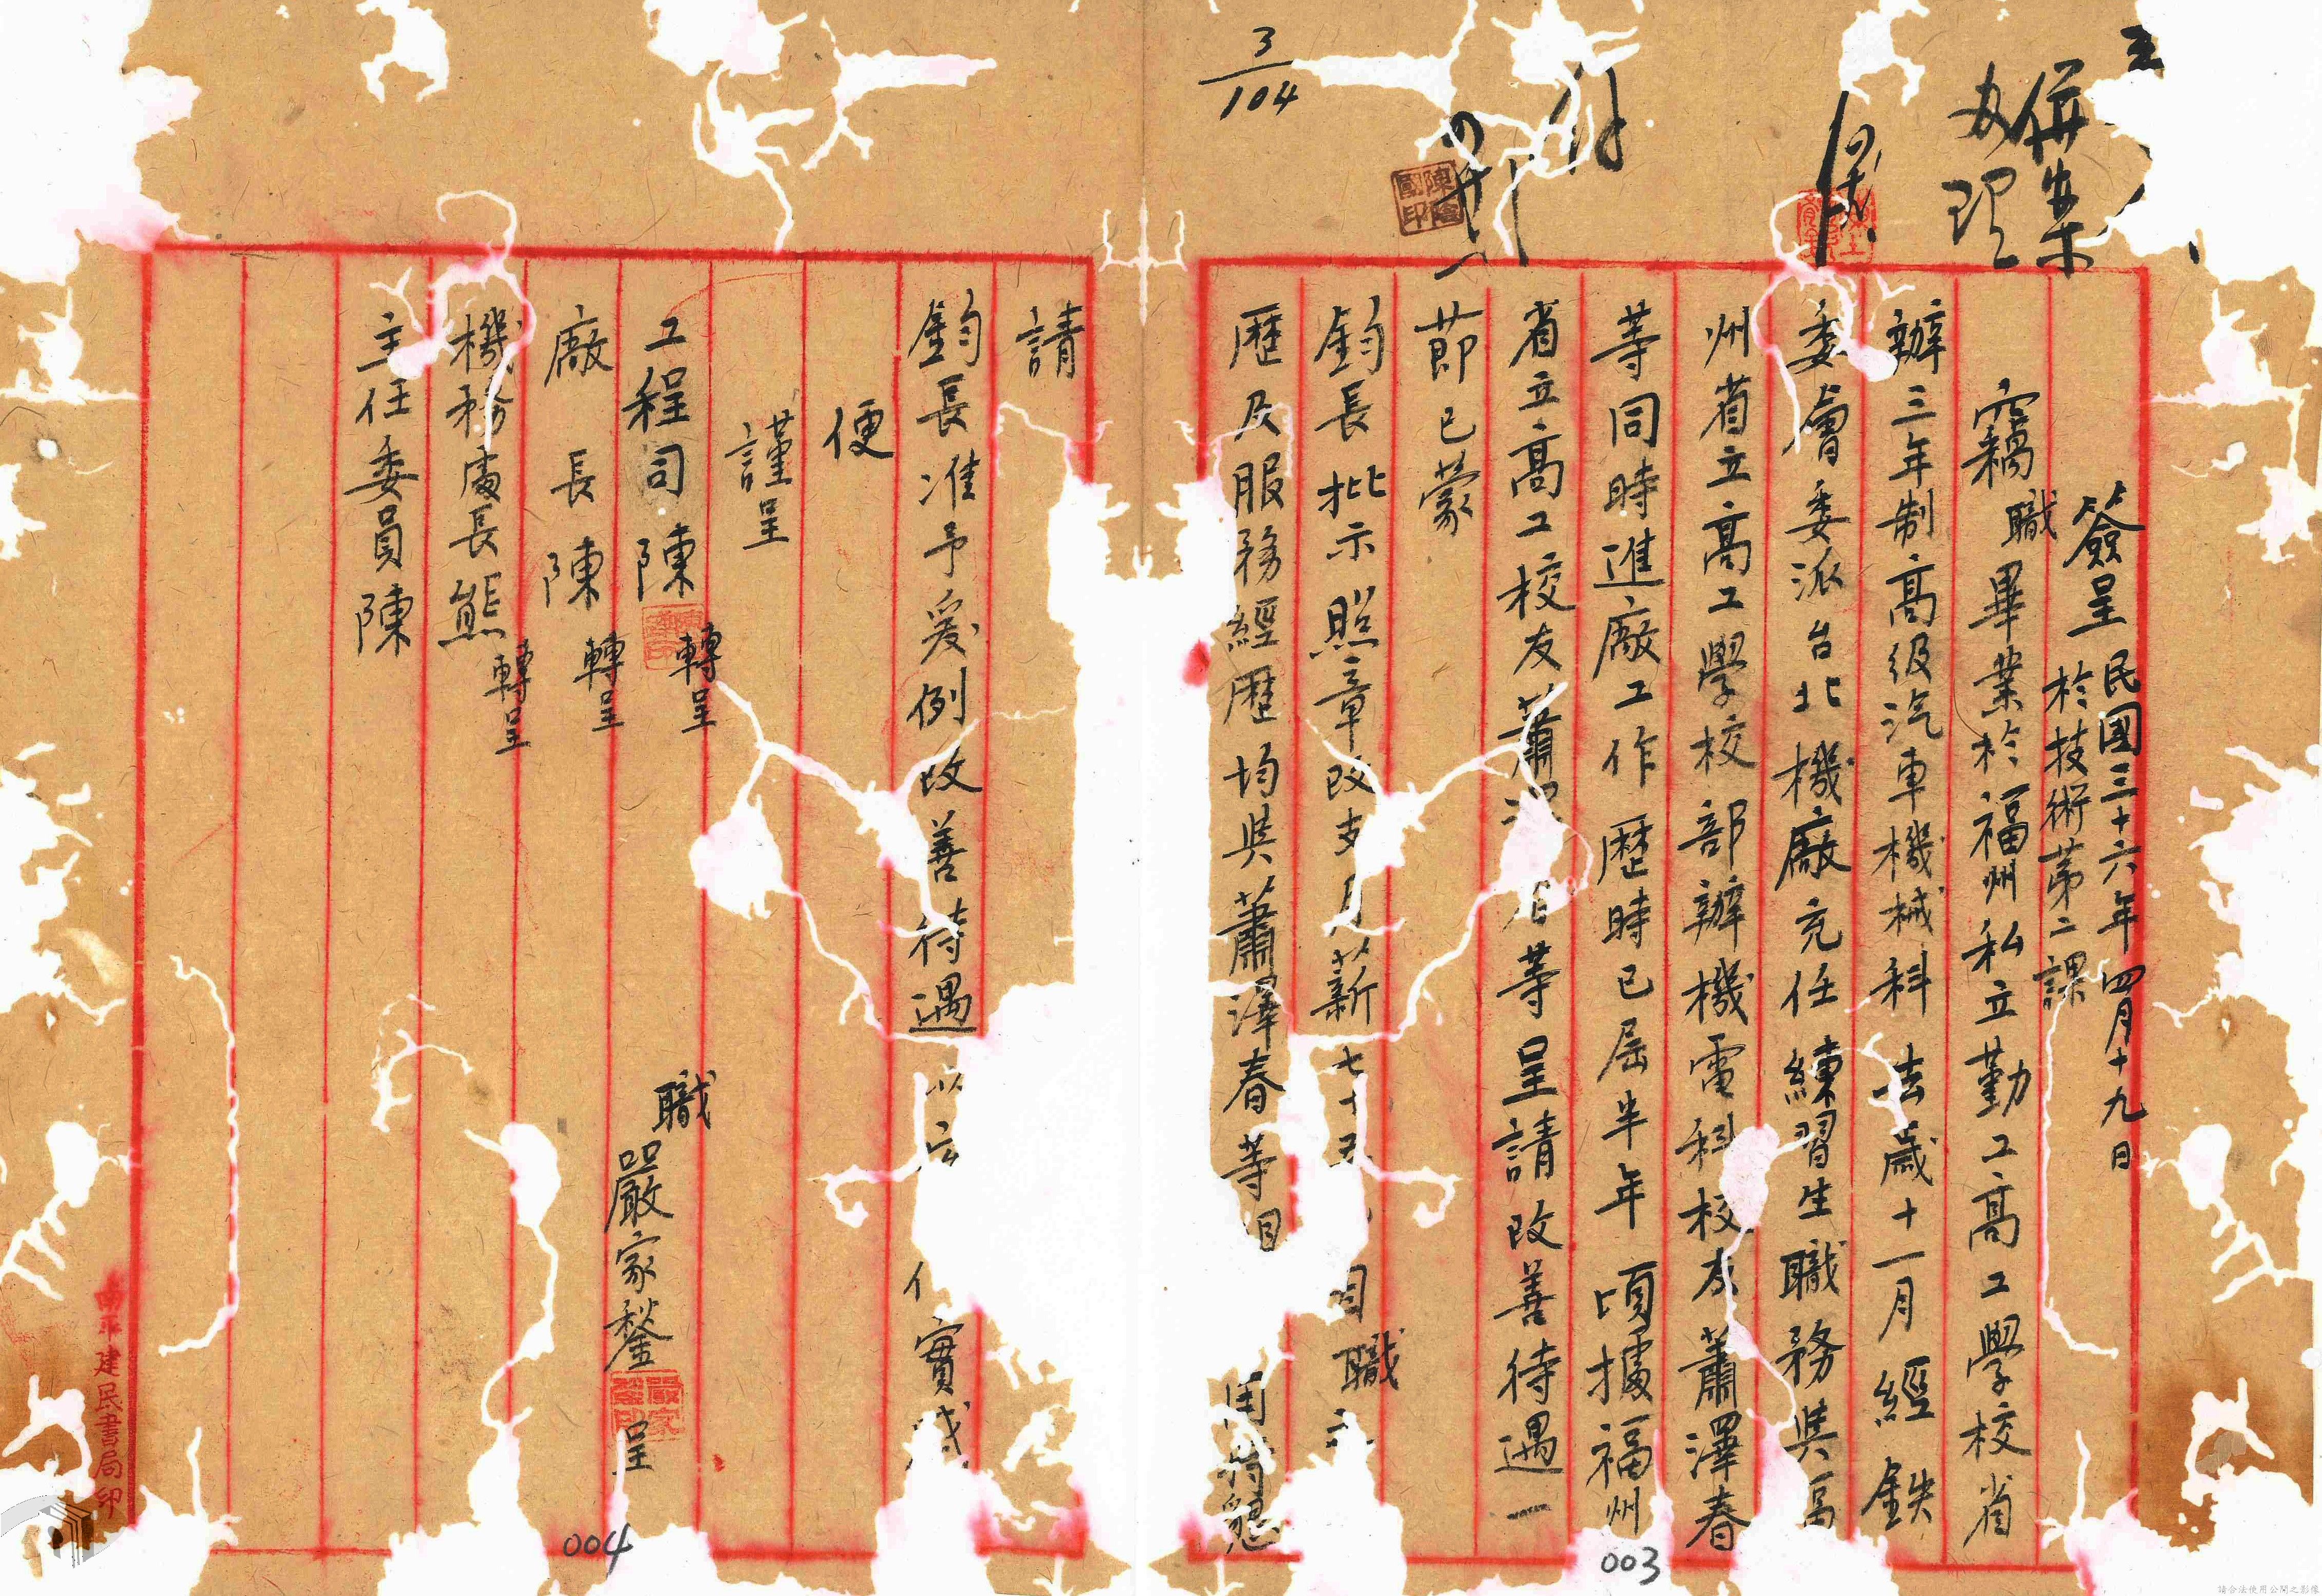 3/104
併案
办理
簽呈 民國三十六年四月十九日
於技術第二課
竊職畢業於福州私立勤工高工學校省
辦三年制高級汽車機械科去歲十一月經鉄
委會委派台北機廠充任練習生職務與福
州省立高工學校部辦機電科校友蕭澤春
等同時進廠工作歷時已屆半年頃據福州
省立高工校友蕭澤春等呈請改善待遇一
節已蒙
鈞長批示照章改支月薪七十五 職
歷及服務經歷均與蕭澤春等目 懇
請
鈞長准予爰例改善待遇以 實 
便
謹呈
工程司陳 轉呈
廠長陳 轉呈
機務處長熊 轉呈
主任委員陳
職
嚴家鏊 呈
陳國印
南平建民書局印
003
004
請合法使用公開之影像